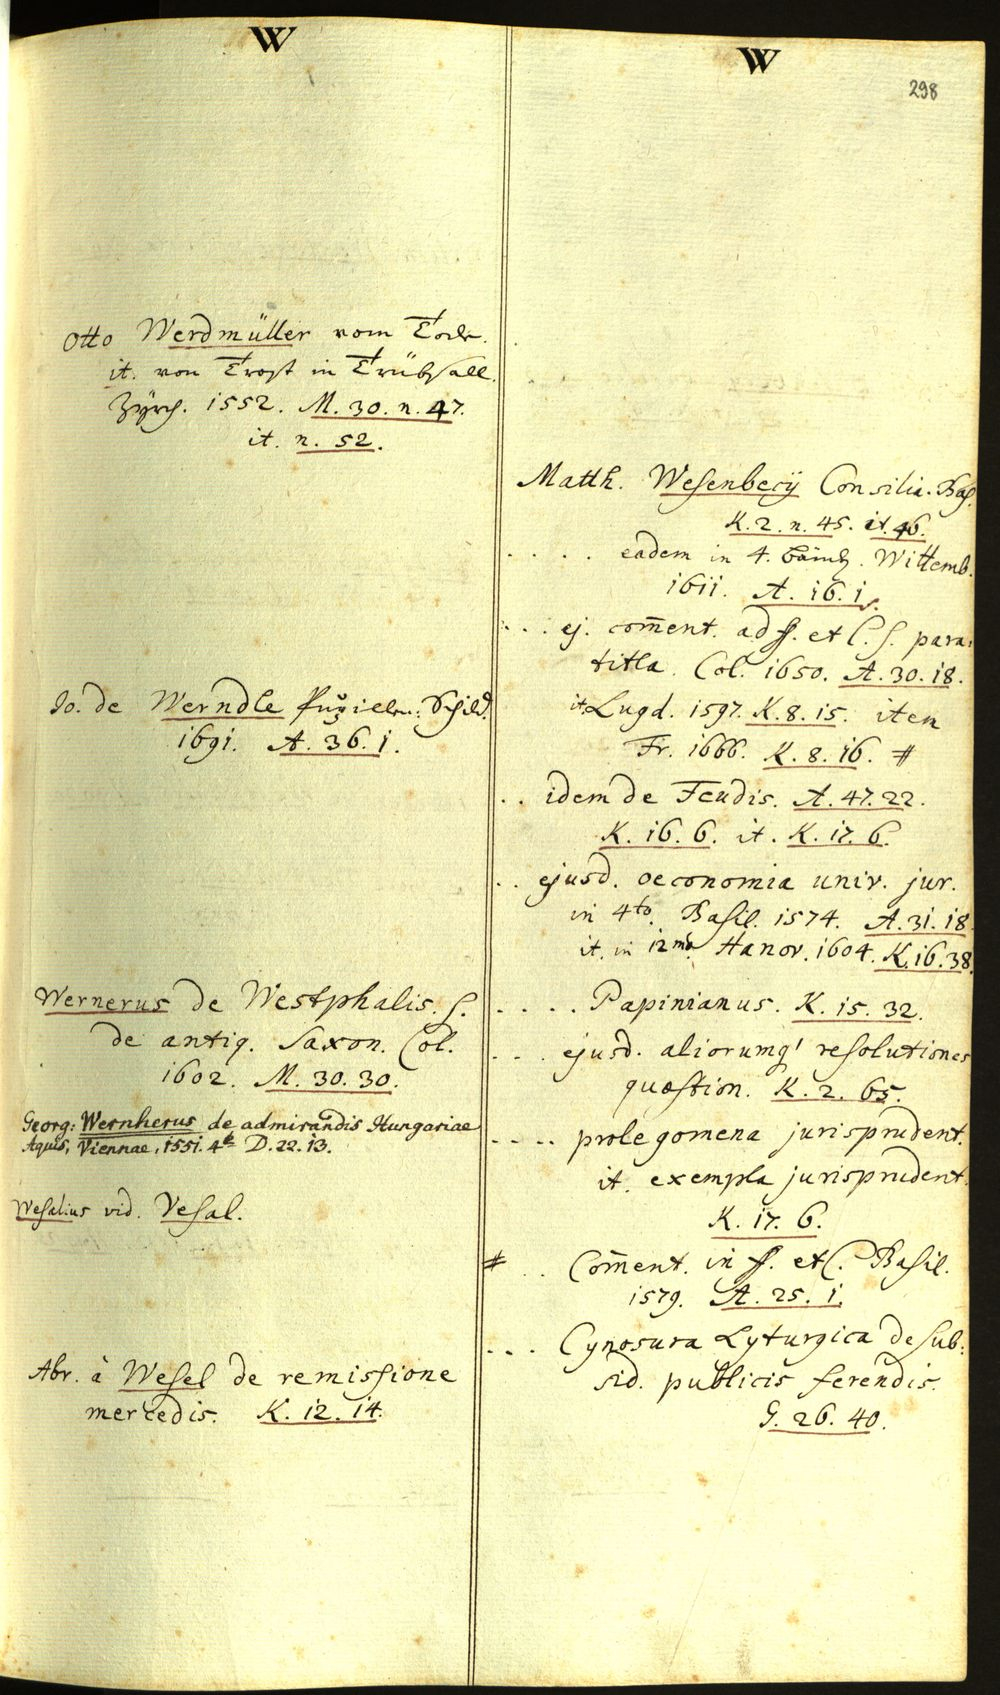 W
Otto Werdmüller vom Tode.
it. von Trost in Trübsall.
Zÿrch. 1552. M. 30. n. 47.
it. n. 52.
Jo. de Werndle Schild.
1691. A. 36. 1.
Wernerus de Westphalis. S.
de antiq. Saxon. Col.
1602. M. 30. 30.
Georg: Wernherus de admirandis Hungariae
Aquis, Viennae, 1551. 4to D. 22. 13.
Wesalius vid. Vesal.
Abr. à Wesel de remissione
mercedis. K. 12. 14.
W
298
Matth. Wesenbecÿ Consilia. Bas.
K. 2. n. 45. it. 46.
. . . . eadem in 4. bänd. Wittemb.
1611. A. 16. 1.
. . . ej. com̄ent. ad ff. et C. s. para:
titla. Col. 1650. A. 30. 18.
it. Lugd. 1597. K. 8. 15. item
Fr. 1666. K. 8. 16. #
. . idem de Feudis. A. 47. 22.
K. 16. 6. it. K. 17. 6.
. . ejusd. oeconomia univ. jur.
in 4to. Basil. 1574. A. 31. 18.
it. in 12mo. Hanov. 1604. K. 16. 38.
. . . . Papinianus. K. 15. 32.
. . . ejusd. aliorumq' resolutiones
quæstion. K. 2. 65.
. . . . prolegomena jurisprudent.
it. exempla jurisprudent.
K. 17. 6.
# . . Com̄ent. in ff. et C. Basil.
1579. A. 25. 1.
. . . Cynosura Lyturgica de sub:
sid. publicis ferendis.
G. 26. 40.